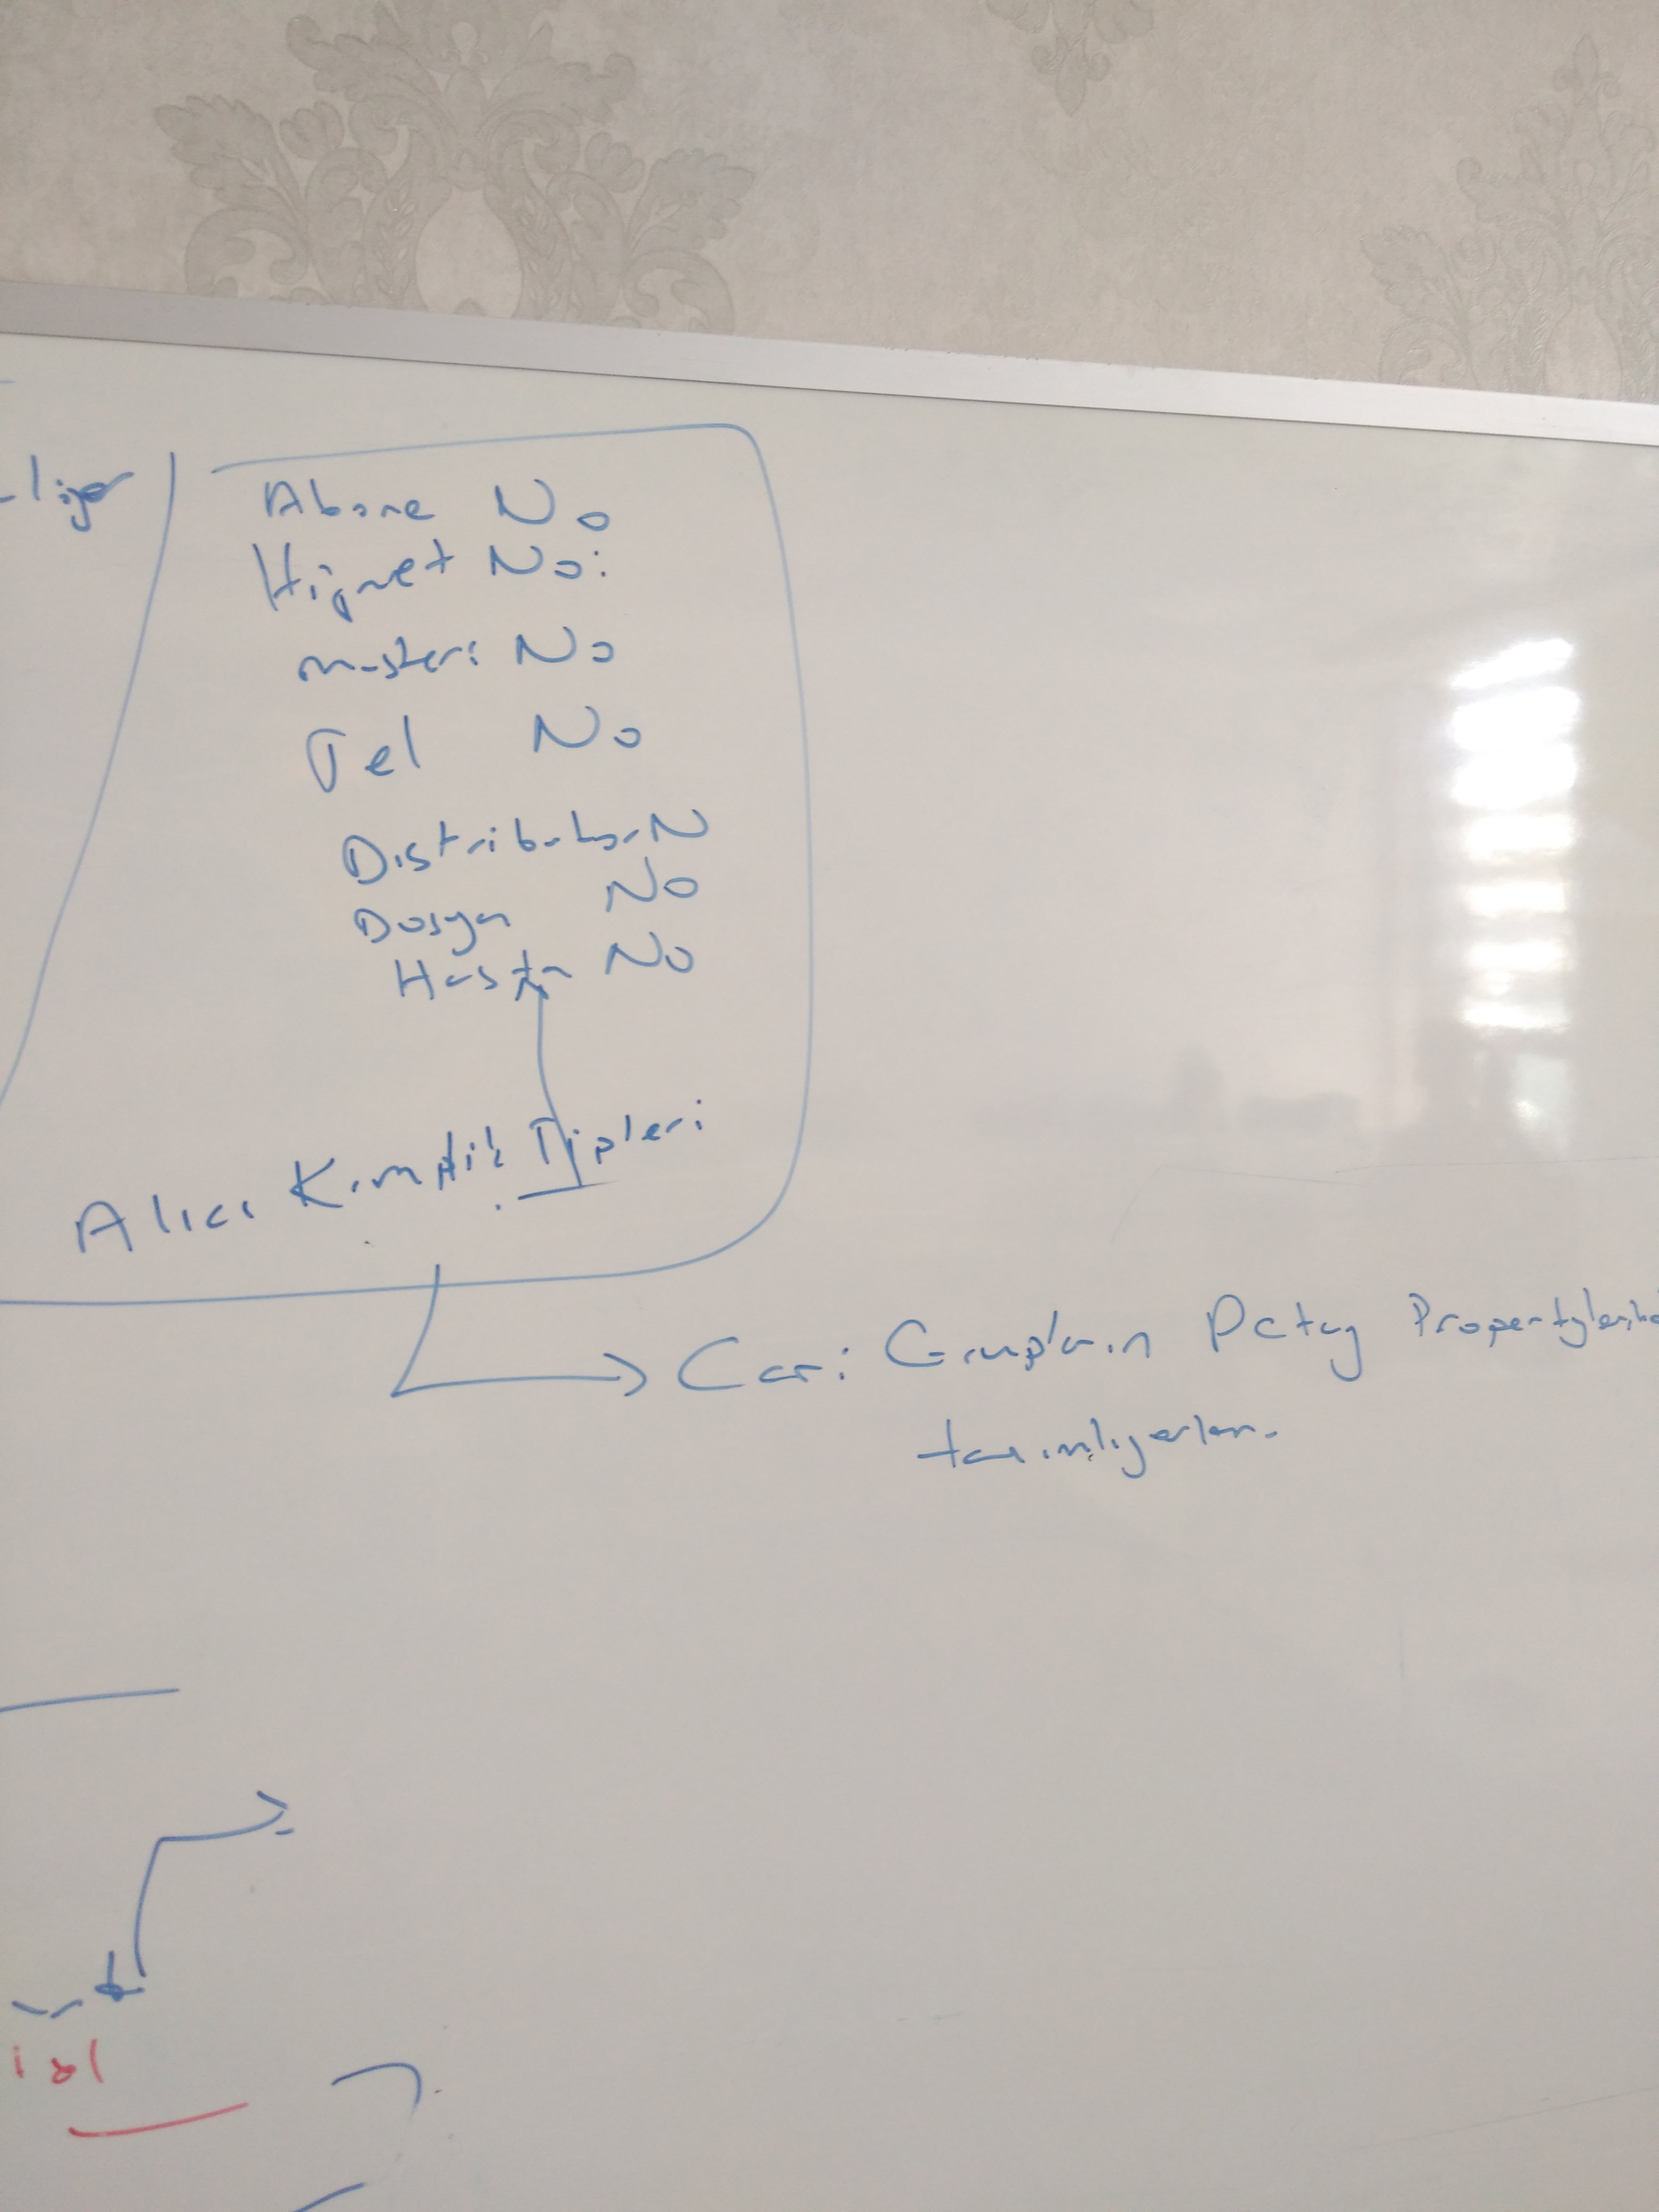 Abone No
Hizmet No:
müşteri No
Tel No
Distribütör N
Dosya No
Hasta No
Alıcı Kimlik Tipleri
Cari Grupların Detay Propertylerinde
tanımlıyorlar.